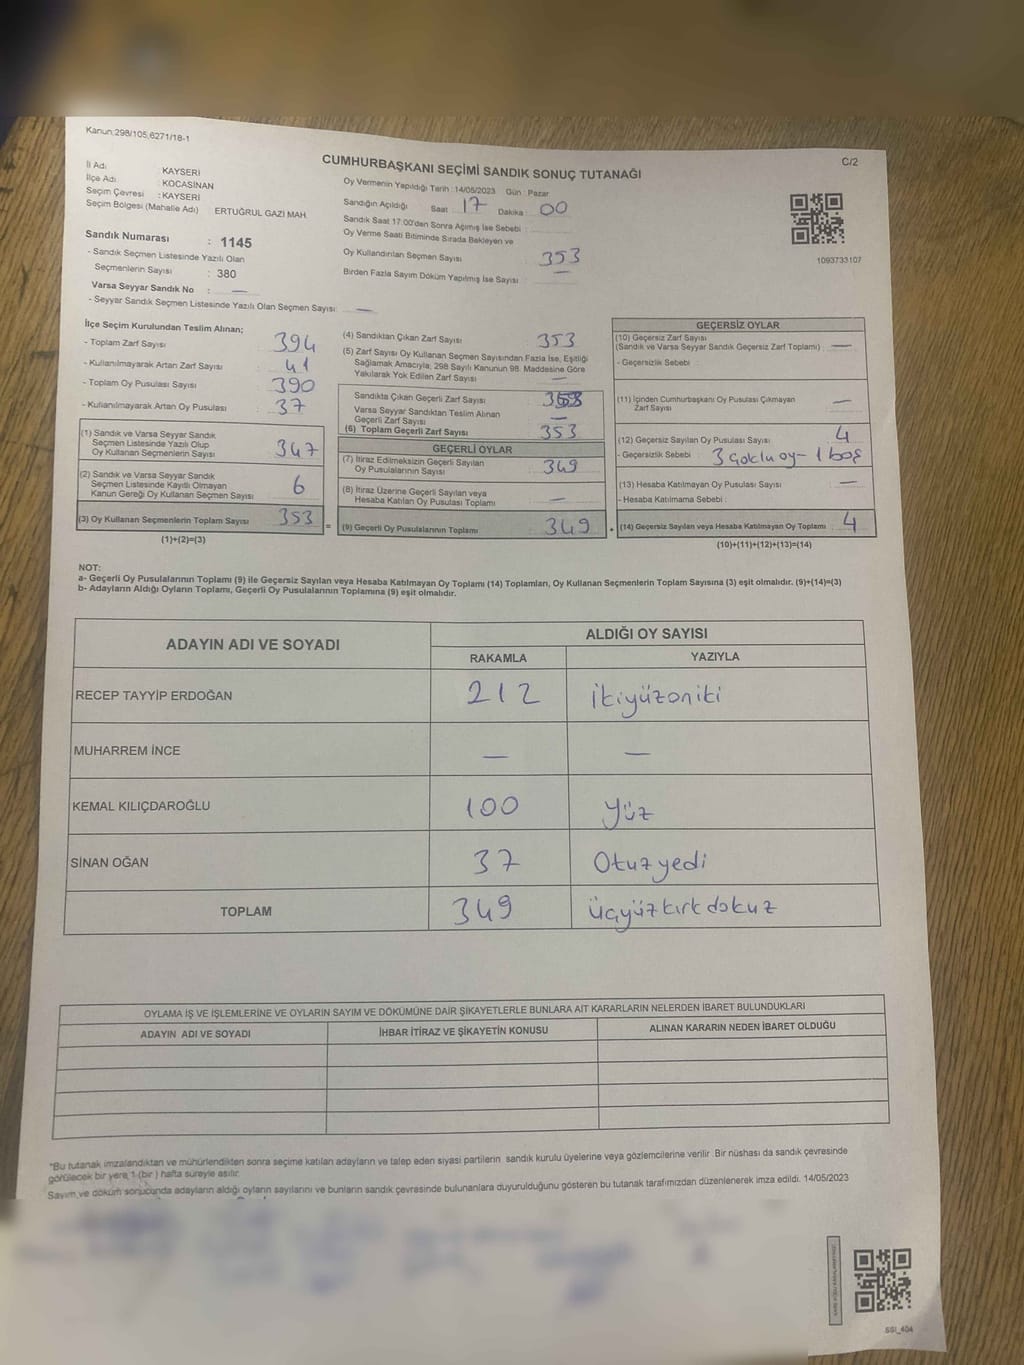 Kanun:298/105,6271/18-1
C/2
CUMHURBAŞKANI SEÇİMİ SANDIK SONUÇ TUTANAĞI
İl Adı : KAYSERİ
İlçe Adı : KOCASİNAN
Seçim Çevresi : KAYSERİ
Seçim Bölgesi (Mahalle Adı) ERTUĞRUL GAZİ MAH.
Sandık Numarası : 1145
- Sandık Seçmen Listesinde Yazılı Olan
Seçmenlerin Sayısı : 380
Varsa Seyyar Sandık No : —
- Seyyar Sandık Seçmen Listesinde Yazılı Olan Seçmen Sayısı: —
Oy Vermenin Yapıldığı Tarih :14/05/2023 Gün : Pazar
Sandığın Açıldığı Saat 17 Dakika 00
Sandık Saat 17:00'den Sonra Açılmış İse Sebebi :
Oy Verme Saati Bitiminde Sırada Bekleyen ve
Oy Kullandırılan Seçmen Sayısı 353
Birden Fazla Sayım Döküm Yapılmış İse Sayısı : —
1093733107
İlçe Seçim Kurulundan Teslim Alınan;
- Toplam Zarf Sayısı : 394
- Kullanılmayarak Artan Zarf Sayısı : 41
- Toplam Oy Pusulası Sayısı : 390
- Kullanılmayarak Artan Oy Pusulası : 37
(1) Sandık ve Varsa Seyyar Sandık
Seçmen Listesinde Yazılı Olup
Oy Kullanan Seçmenlerin Sayısı : 347
(2) Sandık ve Varsa Seyyar Sandık
Seçmen Listesinde Kayıtlı Olmayan
Kanun Gereği Oy Kullanan Seçmen Sayısı : 6
(3) Oy Kullanan Seçmenlerin Toplam Sayısı : 353
(1)+(2)=(3)
(4) Sandıktan Çıkan Zarf Sayısı : 353
(5) Zarf Sayısı Oy Kullanan Seçmen Sayısından Fazla İse, Eşitliği
Sağlamak Amacıyla; 298 Sayılı Kanunun 98. Maddesine Göre
Yakılarak Yok Edilen Zarf Sayısı : —
Sandıkta Çıkan Geçerli Zarf Sayısı :
Varsa Seyyar Sandıktan Teslim Alınan
Geçerli Zarf Sayısı : —
(6) Toplam Geçerli Zarf Sayısı : 353
GEÇERLİ OYLAR
(7) İtiraz Edilmeksizin Geçerli Sayılan
Oy Pusulalarının Sayısı : 349
(8) İtiraz Üzerine Geçerli Sayılan veya
Hesaba Katılan Oy Pusulası Toplamı : —
= (9) Geçerli Oy Pusulalarının Toplamı : 349
GEÇERSİZ OYLAR
(10) Geçersiz Zarf Sayısı
(Sandık ve Varsa Seyyar Sandık Geçersiz Zarf Toplamı) : —
- Geçersizlik Sebebi :
(11) İçinden Cumhurbaşkanı Oy Pusulası Çıkmayan
Zarf Sayısı : —
(12) Geçersiz Sayılan Oy Pusulası Sayısı : 4
- Geçersizlik Sebebi : 3 çoklu oy- 1 boş
(13) Hesaba Katılmayan Oy Pusulası Sayısı : —
- Hesaba Katılmama Sebebi :
+ (14) Geçersiz Sayılan veya Hesaba Katılmayan Oy Toplamı : 4
(10)+(11)+(12)+(13)=(14)
NOT:
a- Geçerli Oy Pusulalarının Toplamı (9) ile Geçersiz Sayılan veya Hesaba Katılmayan Oy Toplamı (14) Toplamları, Oy Kullanan Seçmenlerin Toplam Sayısına (3) eşit olmalıdır. (9)+(14)=(3)
b- Adayların Aldığı Oyların Toplamı, Geçerli Oy Pusulalarının Toplamına (9) eşit olmalıdır.
ADAYIN ADI VE SOYADI ALDIĞI OY SAYISI
RAKAMLA YAZIYLA
RECEP TAYYİP ERDOĞAN 212 ikiyüzoniki
MUHARREM İNCE — —
KEMAL KILIÇDAROĞLU 100 yüz
SİNAN OĞAN 37 Otuzyedi
TOPLAM 349 üçyüzkırkdokuz
OYLAMA İŞ VE İŞLEMLERİNE VE OYLARIN SAYIM VE DÖKÜMÜNE DAİR ŞİKAYETLERLE BUNLARA AİT KARARLARIN NELERDEN İBARET BULUNDUKLARI
ADAYIN ADI VE SOYADI İHBAR İTİRAZ VE ŞİKAYETİN KONUSU ALINAN KARARIN NEDEN İBARET OLDUĞU
"Bu tutanak imzalandıktan ve mühürlendikten sonra seçime katılan adayların ve talep eden siyasi partilerin sandık kurulu üyelerine veya gözlemcilerine verilir. Bir nüshası da sandık çevresinde
görülecek bir yere 1 (bir ) hafta süreyle asılır.
Sayım ve döküm sonucunda adayların aldığı oyların sayılarını ve bunların sandık çevresinde bulunanlara duyurulduğunu gösteren bu tutanak tarafımızdan düzenlenerek imza edildi. 14/05/2023
SSI_404